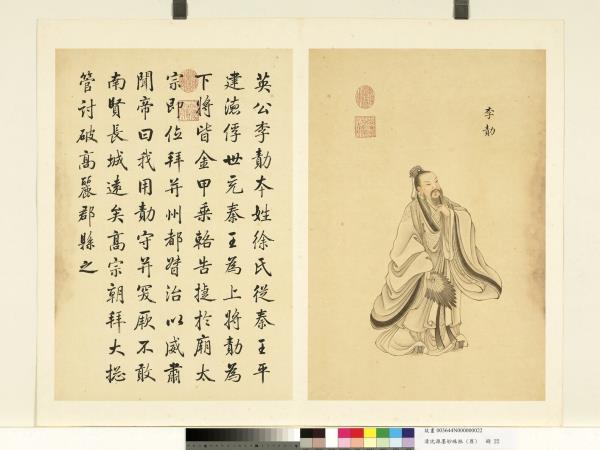 李勣
英公李勣本姓徐氏從秦王平
建德俘世充秦王為上將勣為
下將皆金甲乘輅告捷於廟太
宗即位拜并州都督治以威肅
聞帝曰我用勣守并突厥不敢
南賢長城遠矣高宗朝拜大揔
管討破高麗郡縣之
故畫 003644N000000022
清沈源墨妙珠林 冊 22